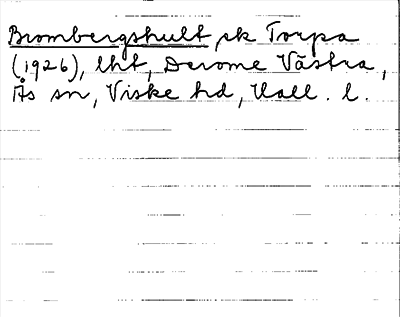 Brombergshult sk Torpa
(1926), lht, Derome Västra,
Ås sn, Viske hd, Hall. l.